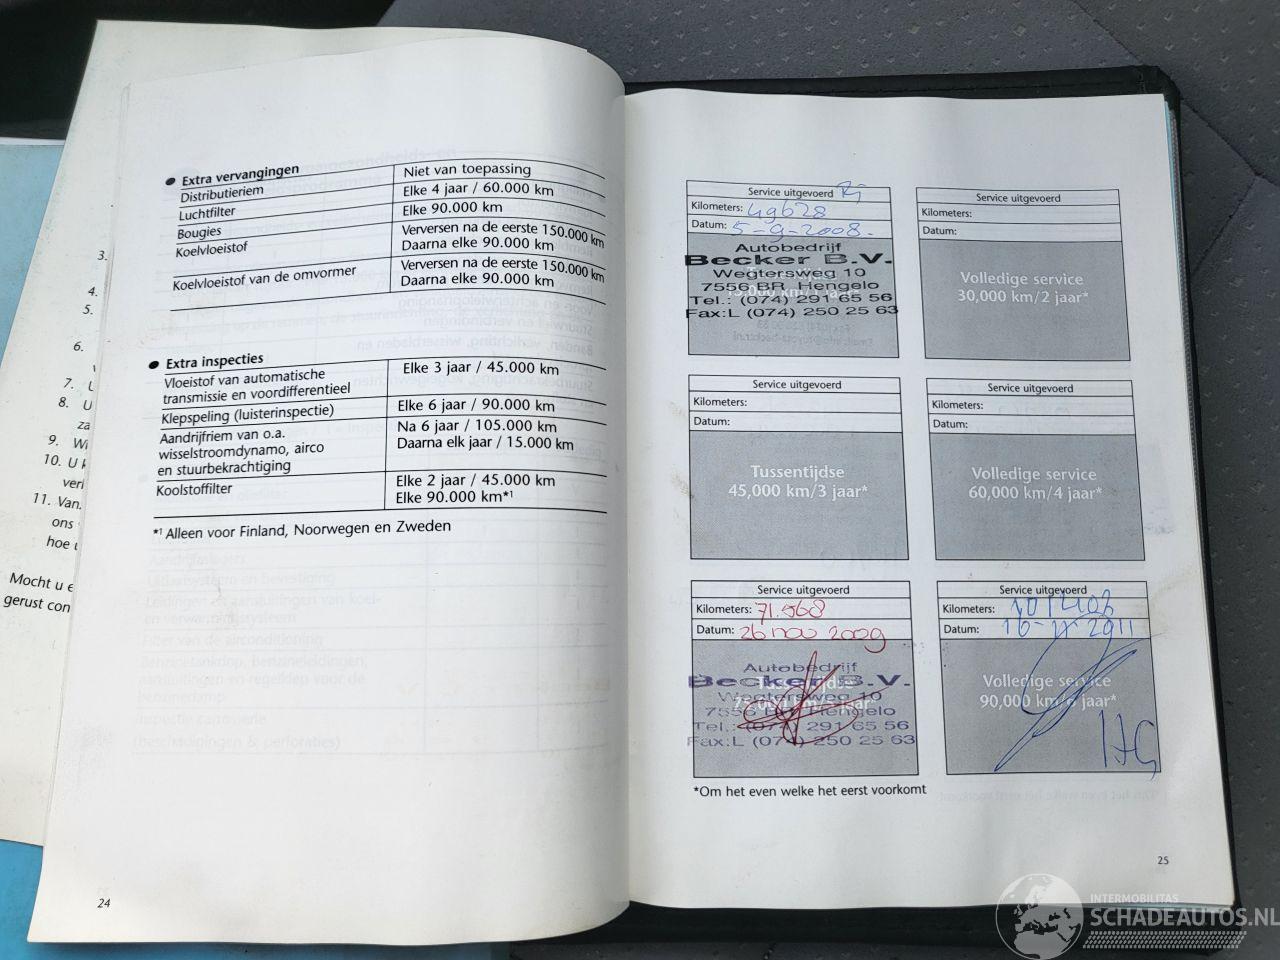 ● Extra vervangingen
Distributieriem Niet van toepassing
Luchtfilter Elke 4 jaar / 60.000 km
Bougies Elke 90.000 km
Koelvloeistof Verversen na de eerste 150.000 km
Daarna elke 90.000 km
Koelvloeistof van de omvormer Verversen na de eerste 150.000 km
Daarna elke 90.000 km
● Extra inspecties
Vloeistof van automatische Elke 3 jaar / 45.000 km
transmissie en voordifferentieel
Klepspeling (luisterinspectie) Elke 6 jaar / 90.000 km
Aandrijfriem van o.a. Na 6 jaar / 105.000 km
wisselstroomdynamo, airco Daarna elk jaar / 15.000 km
en stuurbekrachtiging
Koolstoffilter Elke 2 jaar / 45.000 km
Elke 90.000 km*1
*1 Alleen voor Finland, Noorwegen en Zweden
24
3.
4.
5.
6.
7. U
8. U
za
9. Wi
10. U k
verl
11. Van
ons
hoe
Mocht u e
gerust con
Service uitgevoerd
Kilometers: 49628
Datum: 5-9-2008.
Autobedrijf
Becker B.V.
Wegtersweg 10
7556 BR Hengelo
Tel.: (074) 291 65 56
Fax:L (074) 250 25 63
Service uitgevoerd
Kilometers:
Datum:
Volledige service
30,000 km/2 jaar*
Service uitgevoerd
Kilometers:
Datum:
Tussentijdse
45,000 km/3 jaar*
Service uitgevoerd
Kilometers:
Datum:
Volledige service
60,000 km/4 jaar*
Service uitgevoerd
Kilometers: 71.568
Datum: 26 nov 2009
Autobedrijf
Becker B.V.
Tussentijdse
Wegtersweg 10
7556 BR Hengelo
Tel.: (074) 291 65 56
Fax:L (074) 250 25 63
Service uitgevoerd
Kilometers:
Datum: 16-11-2011
Volledige service
90,000 km/6 jaar*
*Om het even welke het eerst voorkomt
25
INTERMOBILITAS
SCHADEAUTOS.NL